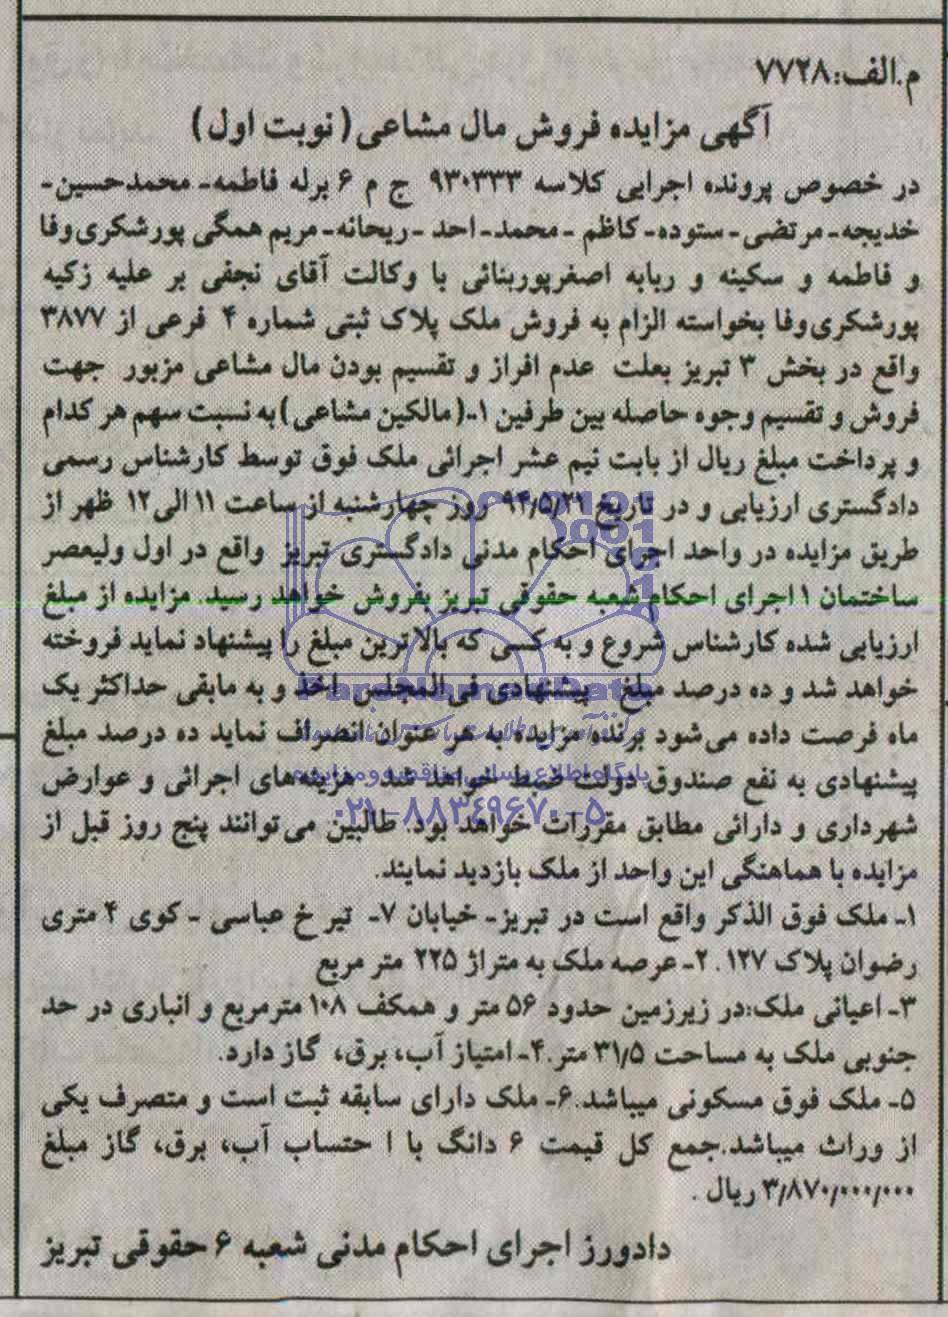 م.الف:۷۷۲۸
آگهی مزایده فروش مال مشاعی (نوبت اول)
در خصوص پرونده اجرایی کلاسه ۹۳۰۳۳۳ ج م ۶ برله فاطمه- محمدحسین-
خدیجه- مرتضی- ستوده- کاظم -محمد- احد -ریحانه- مریم همگی پورشکری‌وفا
و فاطمه و سکینه و ربابه اصغرپوربنائی با وکالت آقای نجفی بر علیه زکیه
پورشکری‌وفا بخواسته الزام به فروش ملک پلاک ثبتی شماره ۴ فرعی از ۳۸۷۷
واقع در بخش ۳ تبریز بعلت عدم افراز و تقسیم بودن مال مشاعی مزبور جهت
فروش و تقسیم وجوه حاصله بین طرفین ۱-(مالکین مشاعی) به نسبت سهم هر کدام
و پرداخت مبلغ ریال از بابت نیم عشر اجرائی ملک فوق توسط کارشناس رسمی
دادگستری ارزیابی و در تاریخ ۹۴/۵/۲۱ روز چهارشنبه از ساعت ۱۱ الی ۱۲ ظهر از
طریق مزایده در واحد اجرای احکام مدنی دادگستری تبریز واقع در اول ولیعصر
ساختمان ۱ اجرای احکام شعبه حقوقی تبریز بفروش خواهد رسید. مزایده از مبلغ
ارزیابی شده کارشناس شروع و به کسی که بالاترین مبلغ را پیشنهاد نماید فروخته
خواهد شد و ده درصد مبلغ پیشنهادی فی‌المجلس اخذ و به مابقی حداکثر یک
ماه فرصت داده می‌شود برنده مزایده به هر عنوان انصراف نماید ده درصد مبلغ
پیشنهادی به نفع صندوق دولت ضبط خواهد شد هزینه‌های اجرائی و عوارض
شهرداری و دارائی مطابق مقررات خواهد بود. طالبین می‌توانند پنج روز قبل از
مزایده با هماهنگی این واحد از ملک بازدید نمایند.
۱- ملک فوق الذکر واقع است در تبریز- خیابان ۷- تیر خ عباسی - کوی ۴ متری
رضوان پلاک ۱۲۷. ۲- عرصه ملک به متراژ ۲۲۵ متر مربع
۳- اعیانی ملک:در زیرزمین حدود ۵۶ متر و همکف ۱۰۸ مترمربع و انباری در حد
جنوبی ملک به مساحت ۳۱/۵ متر.۴- امتیاز آب، برق، گاز دارد.
۵- ملک فوق مسکونی میباشد.۶- ملک دارای سابقه ثبت است و متصرف یکی
از وراث میباشد.جمع کل قیمت ۶ دانگ با ا حتساب آب، برق، گاز مبلغ
۳/۸۷۰/۰۰۰/۰۰۰ ریال .
دادورز اجرای احکام مدنی شعبه ۶ حقوقی تبریز
ParsNamadData
پایگاه اطلاع رسانی مناقصه و مزایده
۰۲۱-۸۸۳۴۹۶۷۰-۵